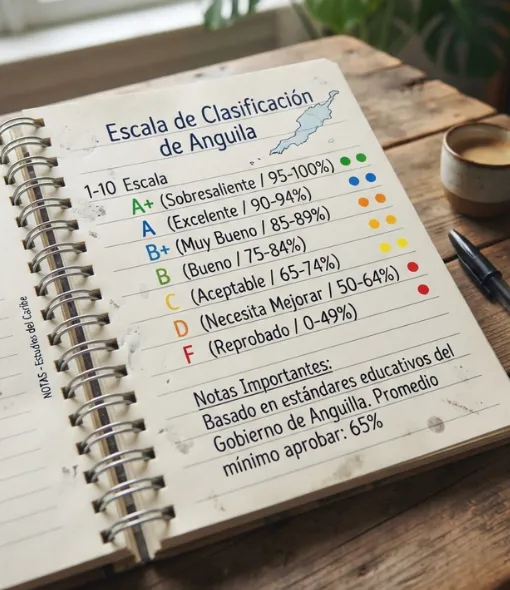 Escala de Clasificación
de Anguila
1-10 Escala
A+ (Sobresaliente / 95-100%)
A (Excelente / 90-94%)
B+ (Muy Bueno / 85-89%)
B (Bueno / 75-84%)
C (Aceptable / 65-74%)
D (Necesita Mejorar / 50-64%)
F (Reprobado / 0-49%)
Notas Importantes:
Basado en estándares educativos del
Gobierno de Anguilla. Promedio
mínimo aprobar: 65%
NOTAS - Estudios del Caribe